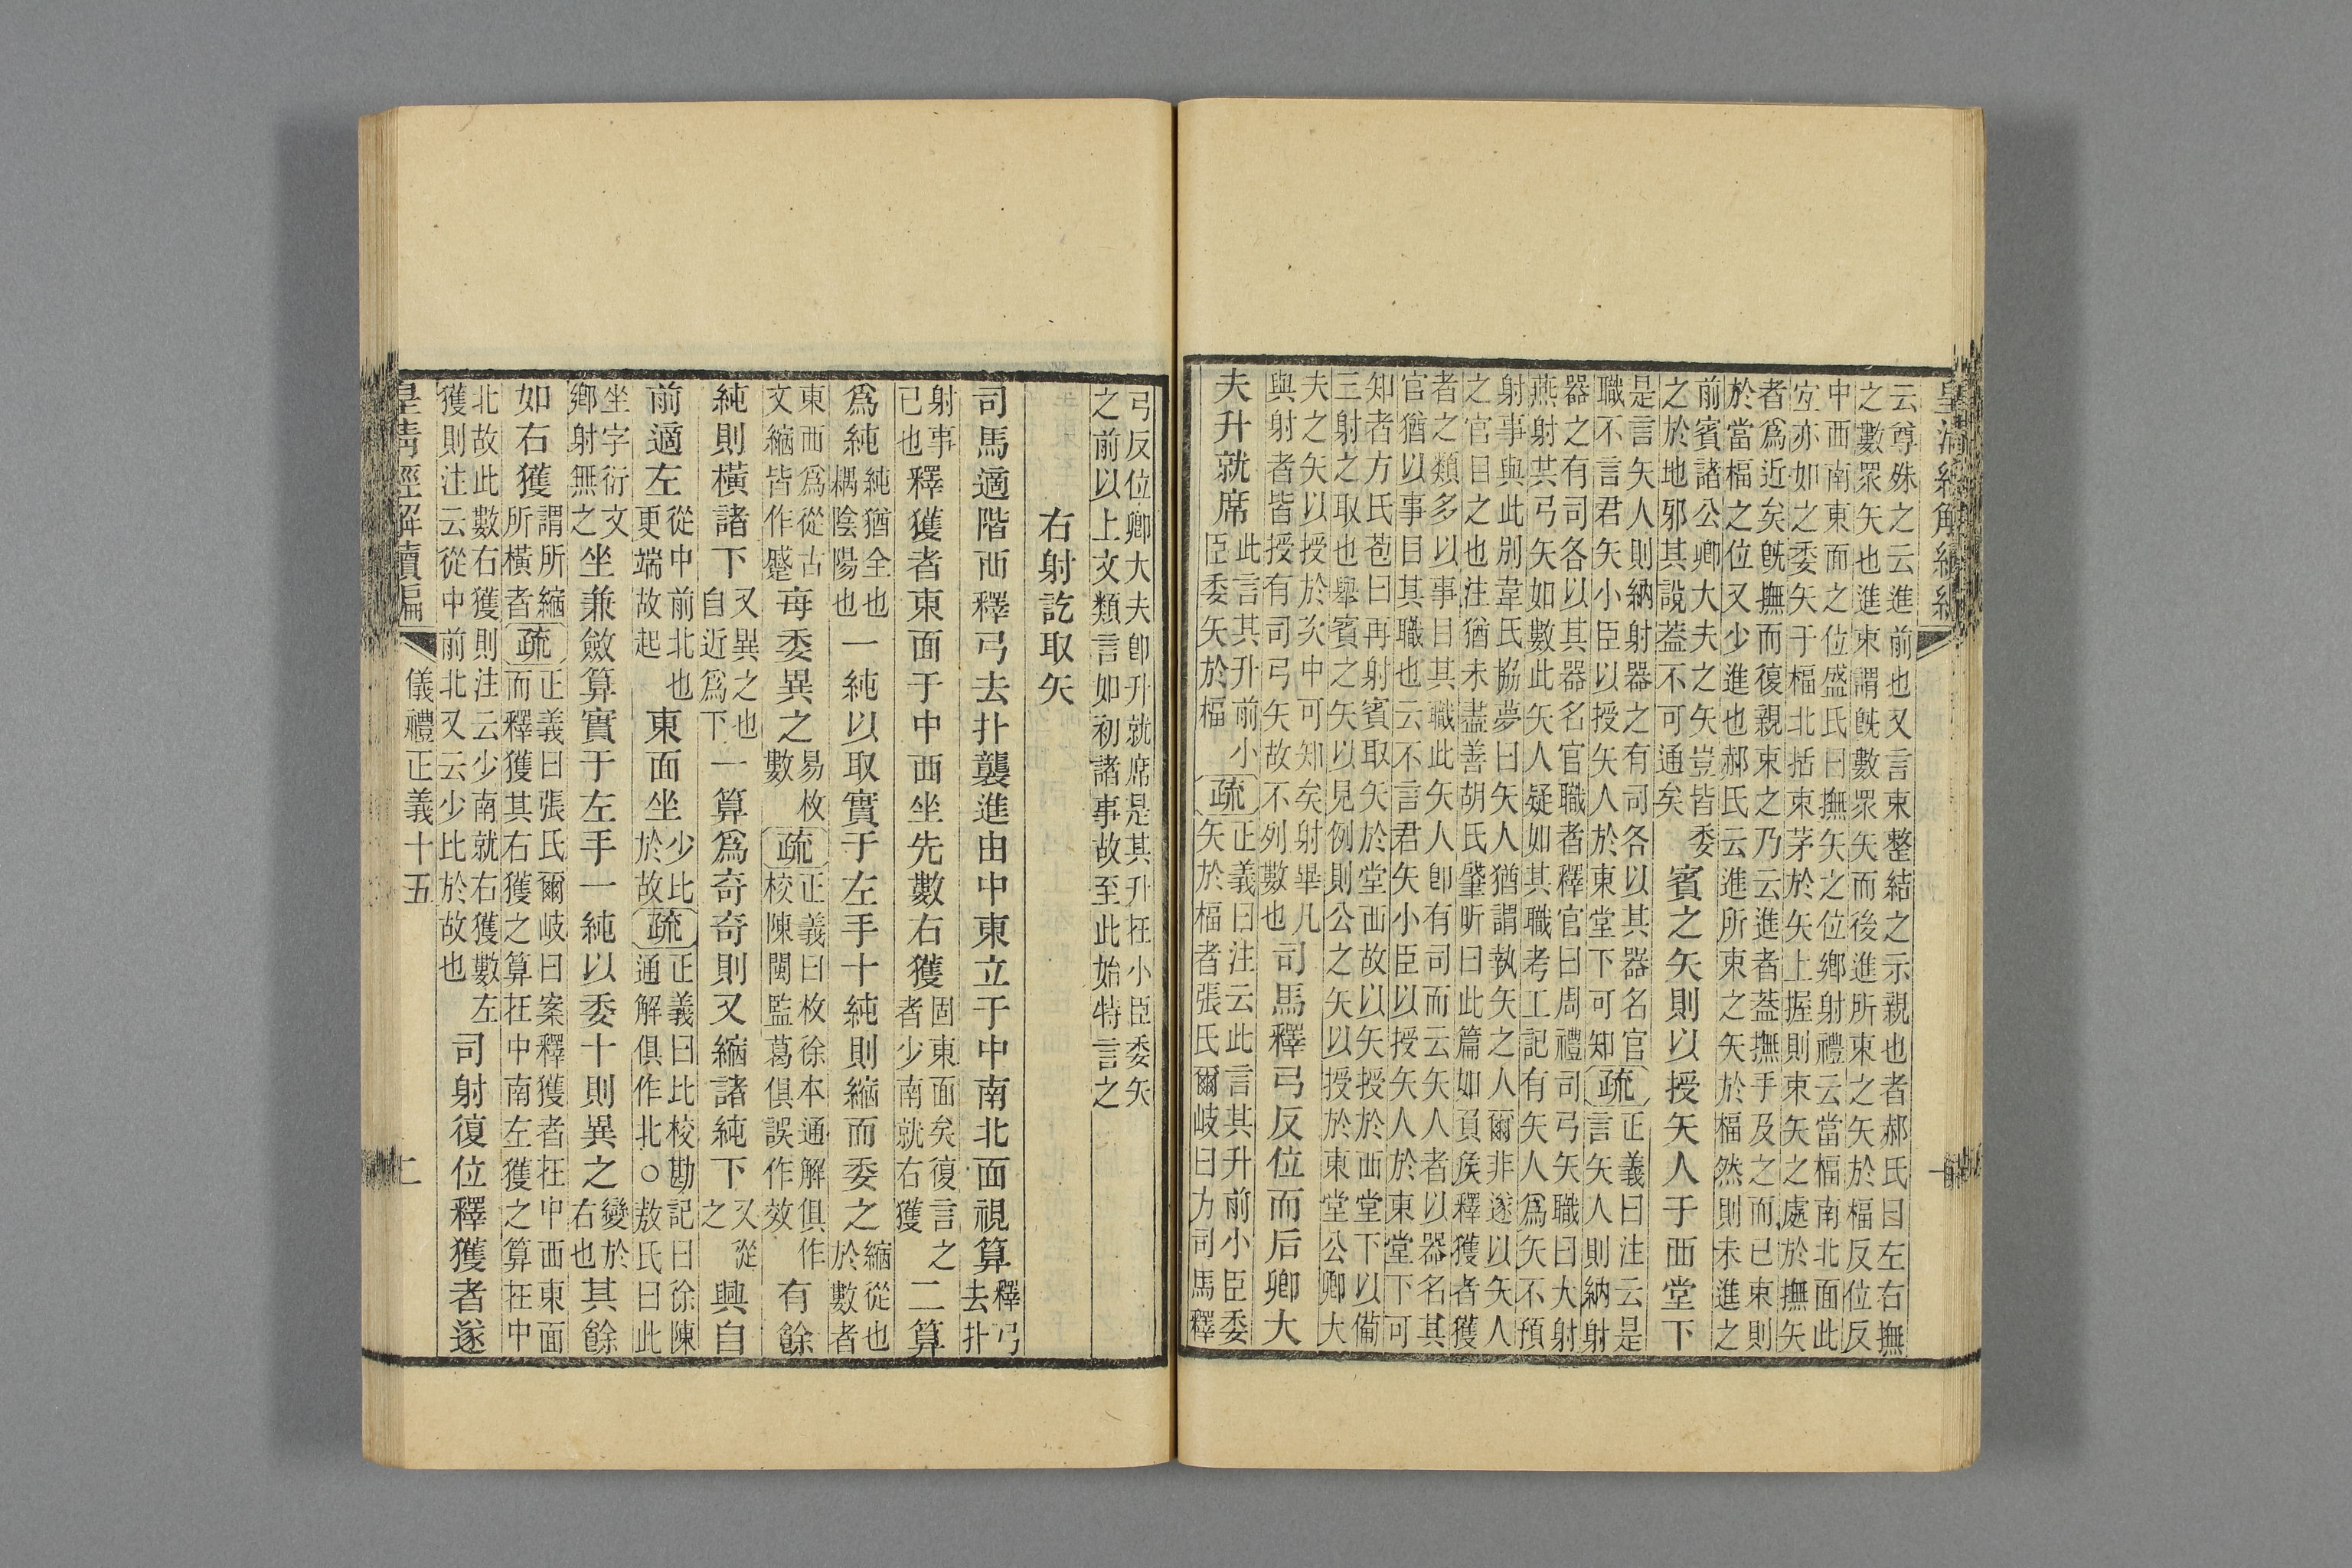 皇清經解續編
云尊殊之云進前也又言束整結之示親也者郝氏曰左右撫
之數眾矢也進束謂旣數眾矢而後進所束之矢於楅反位反
中西南東面之位盛氏曰撫矢之位鄉射禮云當楅南北面此
宐亦如之委矢于楅北括束茅於矢上握則束矢之處於撫矢
者爲近矣旣撫而復親束之乃云進者蓋撫手及之而已束則
於當楅之位又少進也郝氏云進所束之矢於楅然則未進之
前賓諸公卿大夫之矢豈皆委
之於地邪其說蓋不可通矣
賓之矢則以授矢人于西堂下
是言矢人則納射器之有司各以其器名官
職不言君矢小臣以授矢人於東堂下可知
疏
正義曰注云是
言矢人則納射
器之有司各以其器名官職者釋官曰周禮司弓矢職曰大射
燕射共弓矢如數此矢人疑如其職考工記有矢人爲矢不預
射事與此別韋氏協夢曰矢人猶謂執矢之人爾非遂以矢人
之官目之也注猶未盡善胡氏肇昕曰此篇如負矦釋獲者獲
者之類多以事目其職此矢人卽有司而云矢人者以器名其
官猶以事目其職也云不言君矢小臣以授矢人於東堂下可
知者方氏苞曰再射賓取矢於堂西故以矢授於西堂下以備
三射之取也舉賓之矢以見例則公之矢以授於東堂公卿大
夫之矢以授於次中可知矣射畢凡
與射者皆授有司弓矢故不列數也
司馬釋弓反位而后卿大
夫升就席
此言其升前小
臣委矢於楅
疏
正義曰注云此言其升前小臣委
矢於楅者張氏爾岐曰方司馬釋
弓反位卿大夫卽升就席是其升在小臣委矢
之前以上文類言如初諸事故至此始特言之
右射訖取矢
司馬適階西釋弓去扑襲進由中東立于中南北面視算
釋弓
去扑
射事
已也
釋獲者東面于中西坐先數右獲
固東面矣復言之
者少南就右獲
二算
爲純
純猶全也
耦陰陽也
一純以取實于左手十純則縮而委之
縮從也
於數者
東西爲從古
文縮皆作蹙
每委異之
易枚
數
疏
正義曰枚徐本通解俱作
校陳閩監葛俱誤作效
有餘
純則橫諸下
又異之也
自近爲下
一算爲奇奇則又縮諸純下
又從
之
興自
前適左
從中前北也
更端故起
東面坐
少比
於故
疏
正義曰比校勘記曰徐陳
通解俱作北○敖氏曰此
坐字衍文
鄉射無之
坐兼斂算實于左手一純以委十則異之
變於
右也
其餘
如右獲
謂所縮
所橫者
疏
正義曰張氏爾岐曰案釋獲者在中西東面
而釋獲其右獲之算在中南左獲之算在中
北故此數右獲則注云少南就右獲數左
獲則注云從中前北又云少比於故也
司射復位釋獲者遂
皇清經解續編
儀禮正義十五